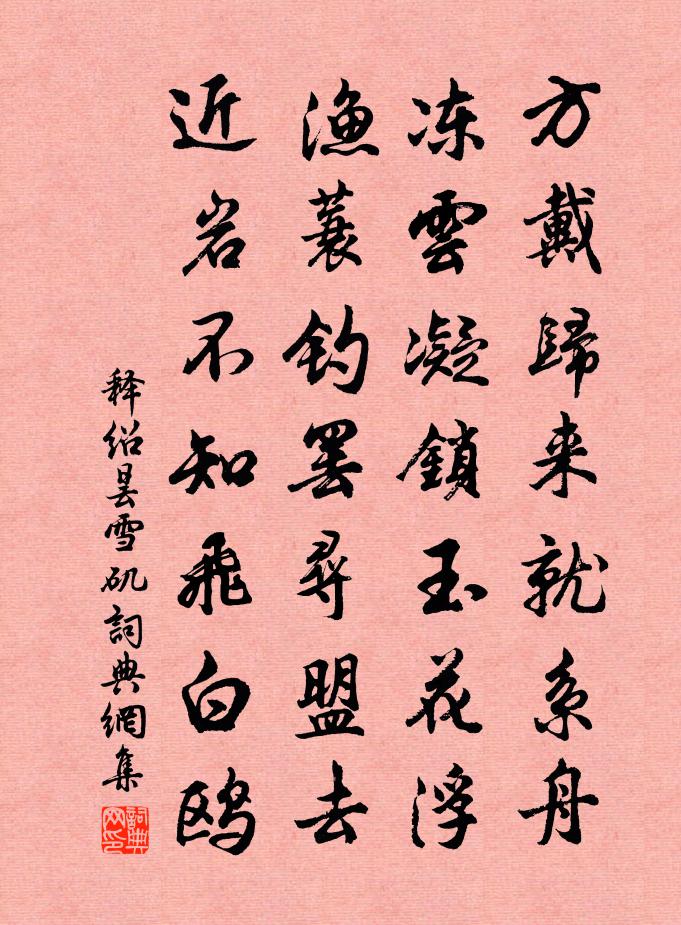 方戴歸来就系舟
冻雲凝鎖玉花浮
漁蓑钓罢尋盟去
近岩不知飛白鸥
释绍昙雪矶詞典網集
詞典网印